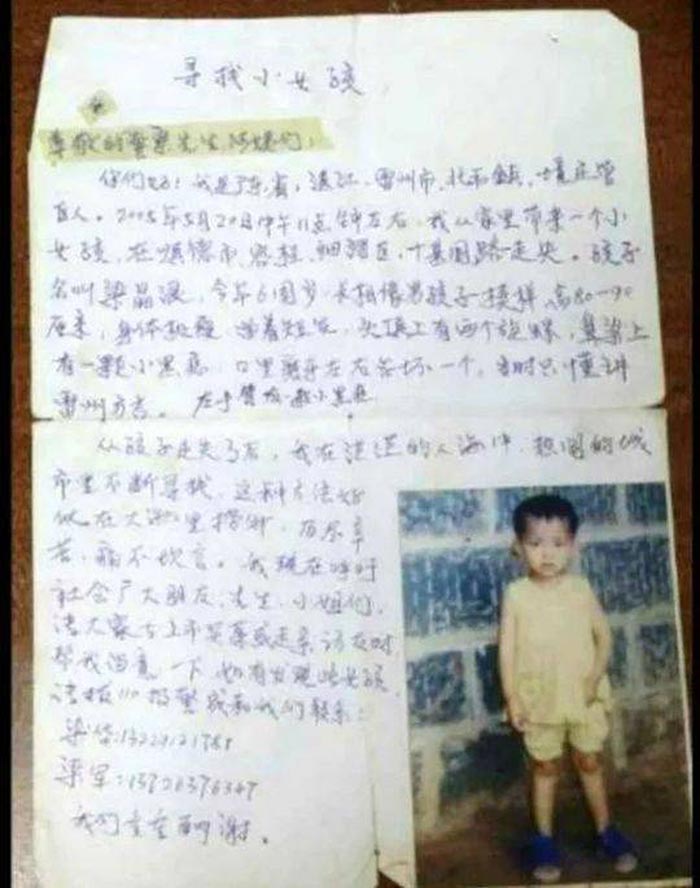 寻找小女孩
尊敬的警察先生、阿姨们：
你们好！我是广东省，湛江，雷州市，北和镇，境庄管
区人。2005年5月20日中午11点钟左右，我从家里带来一个小
女孩，在顺德市，容桂，细滘区，十基围路走失。孩子
名叫梁晶，今年6周岁，长相像男孩子一模样，高80—90
厘米，身体较瘦，留着短发，头顶上有两个旋螺，鼻梁上
有一颗小黑痣，口里左右各坏一个。当时只懂讲
雷州方言。左手臂有一颗小黑痣
从孩子走失了后，我在茫茫的人海中，热闹的城
市里不断寻找，这种方法好
似在大海里捞针，历尽辛
苦，痛不欲言。我现在呼吁
社会广大朋友，先生，小姐们，
请大家在上市买菜或走亲访友时
帮我留意一下，如有发现此女孩，
请拨110报警或和我们联系：
梁华:
梁军:13726376347
我们重重酬谢。